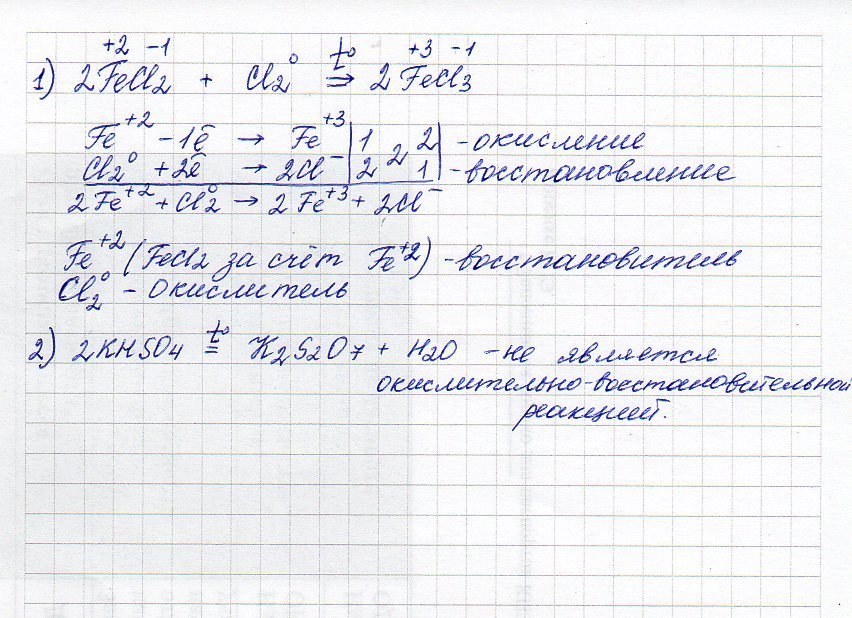 +2 -1 0 t° +3 -1
1) 2FeCl₂ + Cl₂ ⇒ 2FeCl₃
Fe⁺² - 1ē → Fe⁺³ | 1 2 2 | - окисление
Cl₂⁰ + 2ē → 2Cl⁻ | 2 1 | - восстановление
2Fe⁺² + Cl₂⁰ → 2Fe⁺³ + 2Cl⁻
Fe⁺² (FeCl₂ за счёт Fe⁺²) - восстановитель
Cl₂⁰ - окислитель
t°
2) 2KHSO₄ = K₂S₂O₇ + H₂O - не является
окислительно-восстановительной
реакцией.